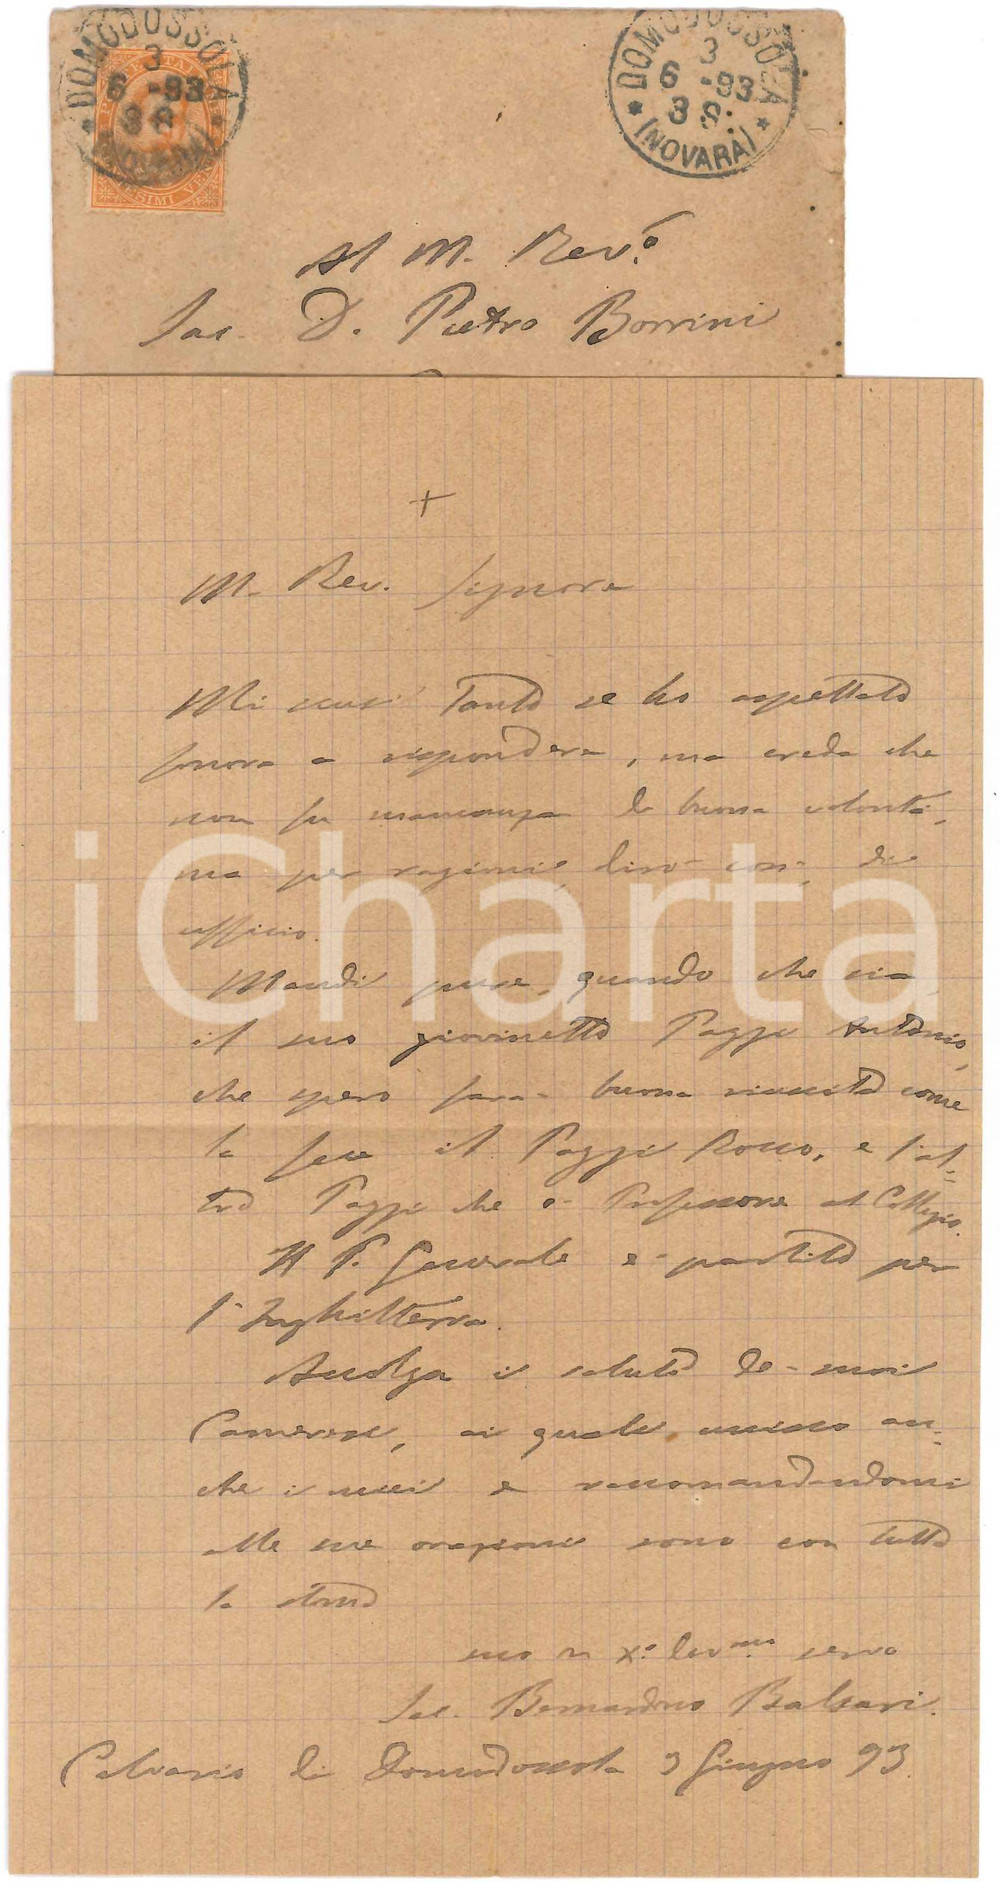 DOMODOSSOLA
3
6 -93
3 S.
(NOVARA)
DOMODOSSOLA
3
6 -93
3 S.
(NOVARA)
Al M. Rev.o
Sac. D. Pietro Borrini
+
M. Rev. Signore
Mi scusi tanto se ho aspettato
finora a rispondere, ma creda che
non fu mancanza di buona volontà,
ma per ragioni, dirò così, di
ufficio.
Mandi pure, quando che sia
il suo giovinetto Pazzi Antonio,
che spero farà buona riuscita come
la fece il Pazzi Rocco, e l'al=
tro Pazzi che è Professore al Collegio.
Il P. Generale è partito per
l'Inghilterra.
Accolga i saluti de' miei
, ai quali unisco an=
che i miei e raccomandandomi
alle sue orazioni sono con tutta
la stima
suo in Xo servo
Sac. Bernardino Balsari.
Calvario di Domodossola 3 Giugno 93.
iCharta